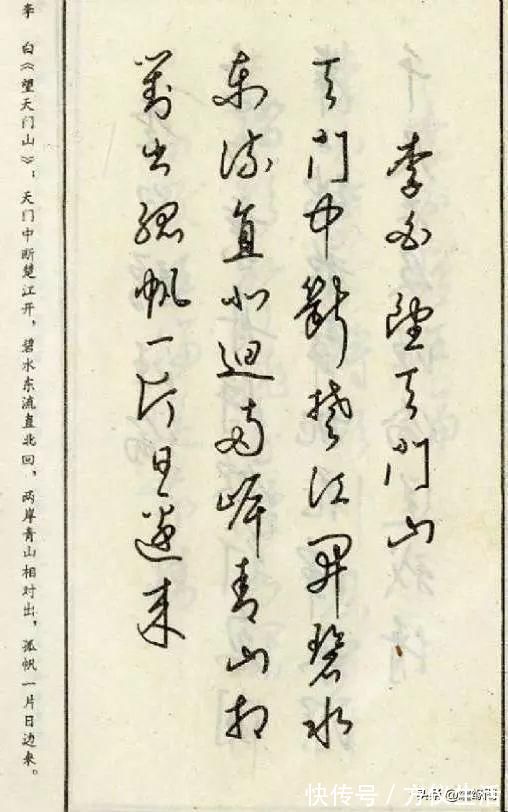 李白望天门山
天门中断楚江开碧水
东流直北迴两岸青山相
对出孤帆一片日边来
李 白《望天门山》：天门中断楚江开，碧水东流直北回，两岸青山相对出，孤帆一片日边来。
快传号／方
头条